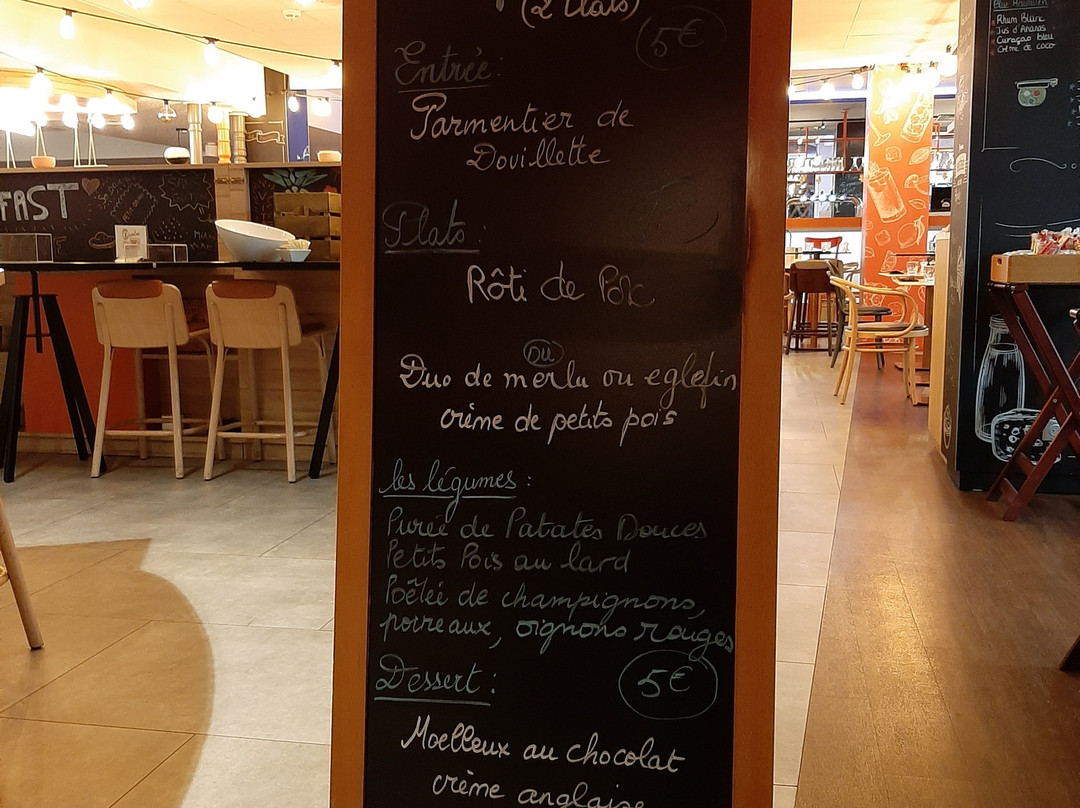 (2 Plats)
5€
Entrée:
Parmentier de
Douillette
Plats:
Rôti de Porc
OU
Duo de merlu ou eglefin
crème de petits pois
les légumes:
Purée de Patates Douces
Petits Pois au lard
Poêlée de champignons,
poireaux, oignons rouges
Dessert:
5€
Moelleux au chocolat
crème anglaise
FAST
Blue Hawaiien
Rhum Blanc
Jus d'Ananas
Curaçao bleu
Crème de coco